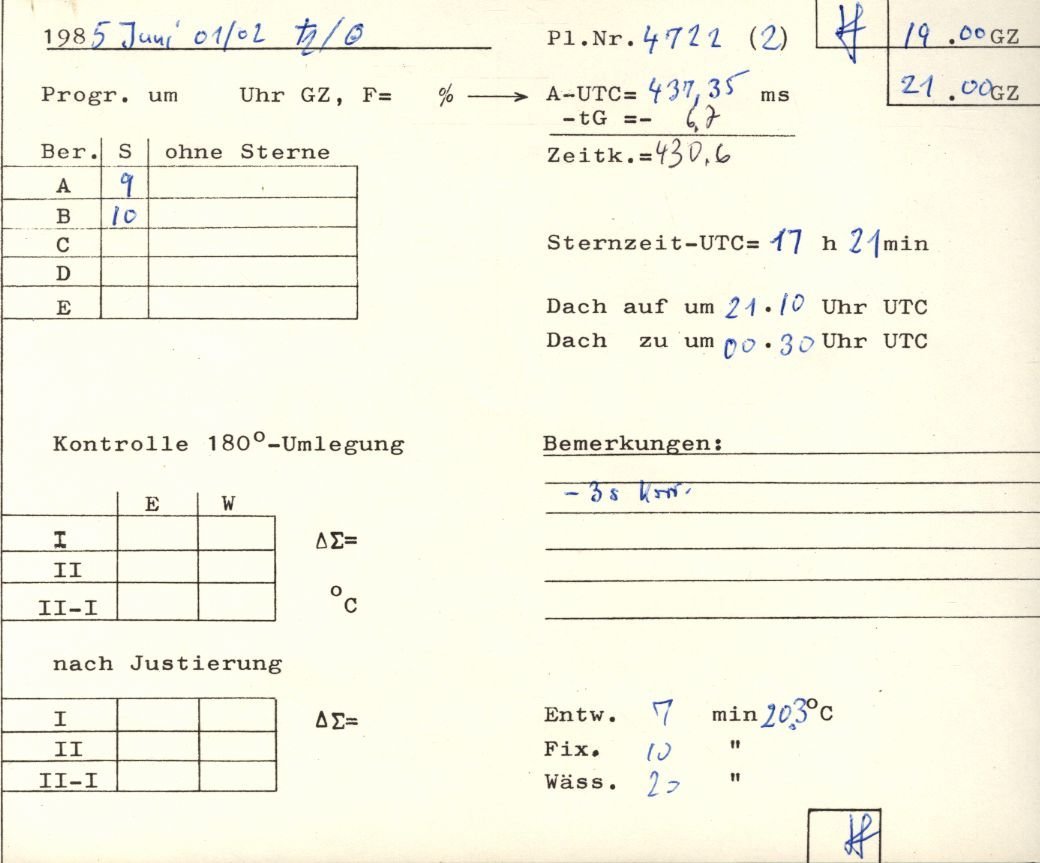 1985 Juni 01/02 ♄/☉ Pl.Nr. 4722 (2) 19.00 GZ
Progr. um Uhr GZ, F= % → A-UTC= 437,35 ms 21.00 GZ
-tG =- 6,7
Ber. S ohne Sterne Zeitk.= 430,6
A 9
B 10
C Sternzeit-UTC= 17 h 21 min
D
E Dach auf um 21.10 Uhr UTC
Dach zu um 00.30 Uhr UTC
Kontrolle 180°-Umlegung Bemerkungen:
E W - 3s Korr.
I ΔΣ=
II
II-I °C
nach Justierung
I ΔΣ= Entw. 7 min 20,3 °C
II Fix. 10 "
II-I Wäss. 20 "